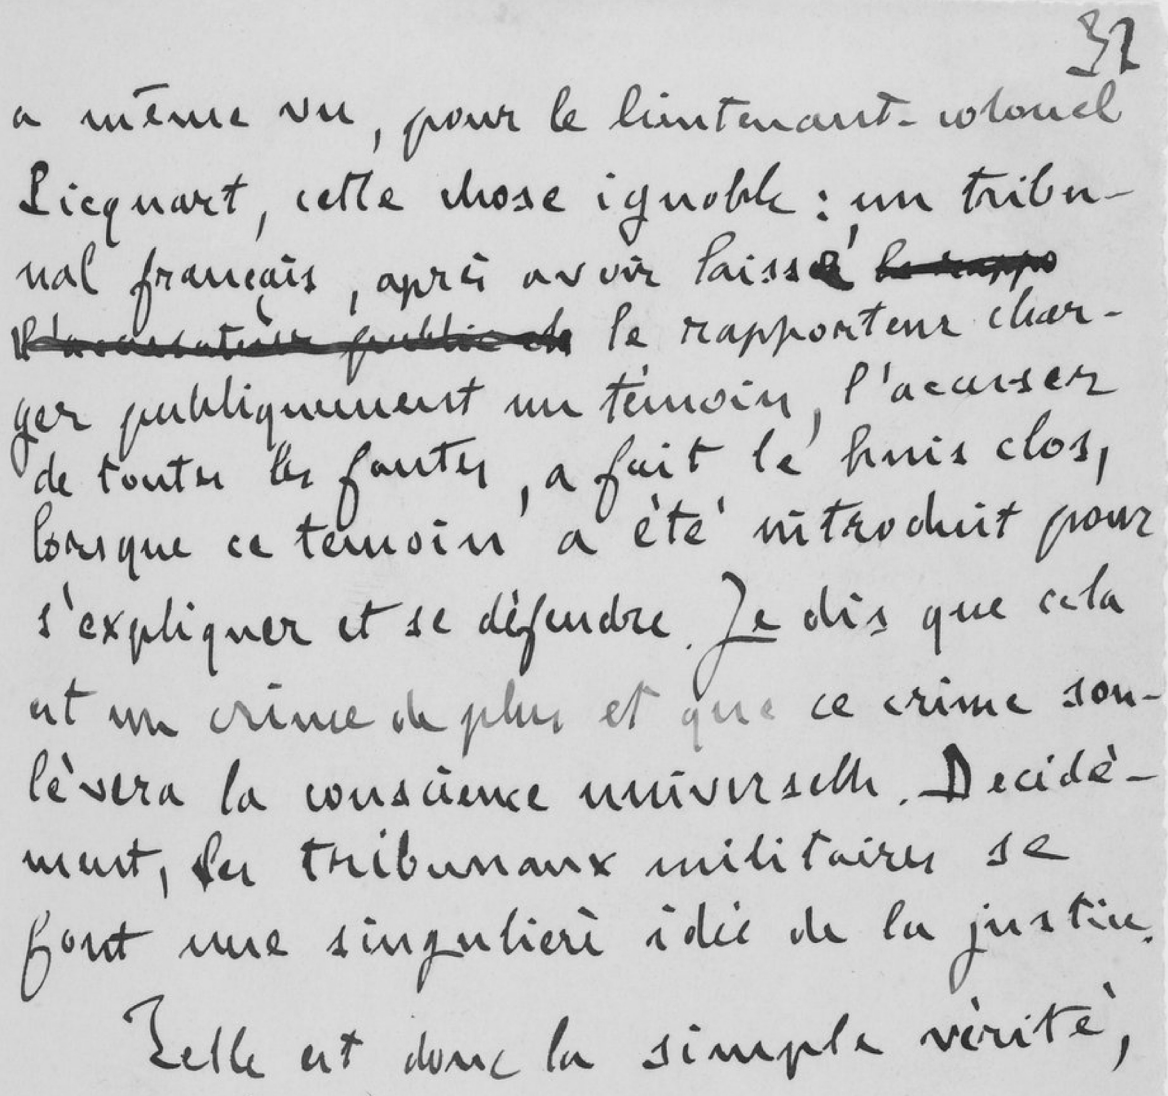 32
a même vu, pour le lieutenant-colonel
Picquart, cette chose ignoble : un tribu-
nal français, après avoir laissé le rappo
l'accusateur public ch le rapporteur char-
ger publiquement un témoin, l'accuser
de toutes les fautes, a fait le huis clos,
lorsque ce témoin a été introduit pour
s'expliquer et se défendre. Je dis que cela
est un crime de plus et que ce crime sou-
lèvera la conscience universelle. Décidé-
ment, les tribunaux militaires se
font une singulière idée de la justice.
Telle est donc la simple vérité,